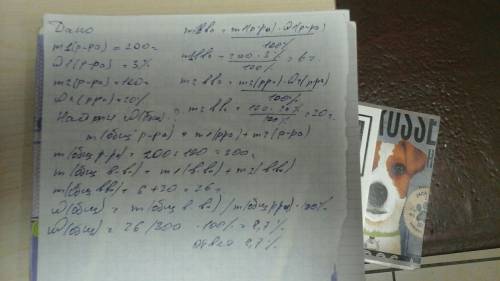 Дано
m1(р-ра) = 200г
ω1(р-ра) = 3%
m2(р-ра) = 100г
ω2(р-ра) = 20%
Найти ω(общ) - ?
m1 в-ва = m1(р-ра) · ω1(р-ра)
100%
m1 в-ва = 200 · 3% = 6г
100%
m2 в-ва = m2(р-ра) · ω2(р-ра)
100%
m2 в-ва = 100 · 20% = 20г
100%
m(общ р-ра) = m1(р-ра) + m2(р-ра)
m(общ р-ра) = 200 + 100 = 300г
m(общ в-ва) = m1(в-ва) + m2(в-ва)
m(общ в-ва) = 6 + 20 = 26г
ω(общ) = m(общ в-ва) / m(общ р-ра) · 100%
ω(общ) = 26/300 · 100% = 8,7%
ответ 8,7%
RUSSE